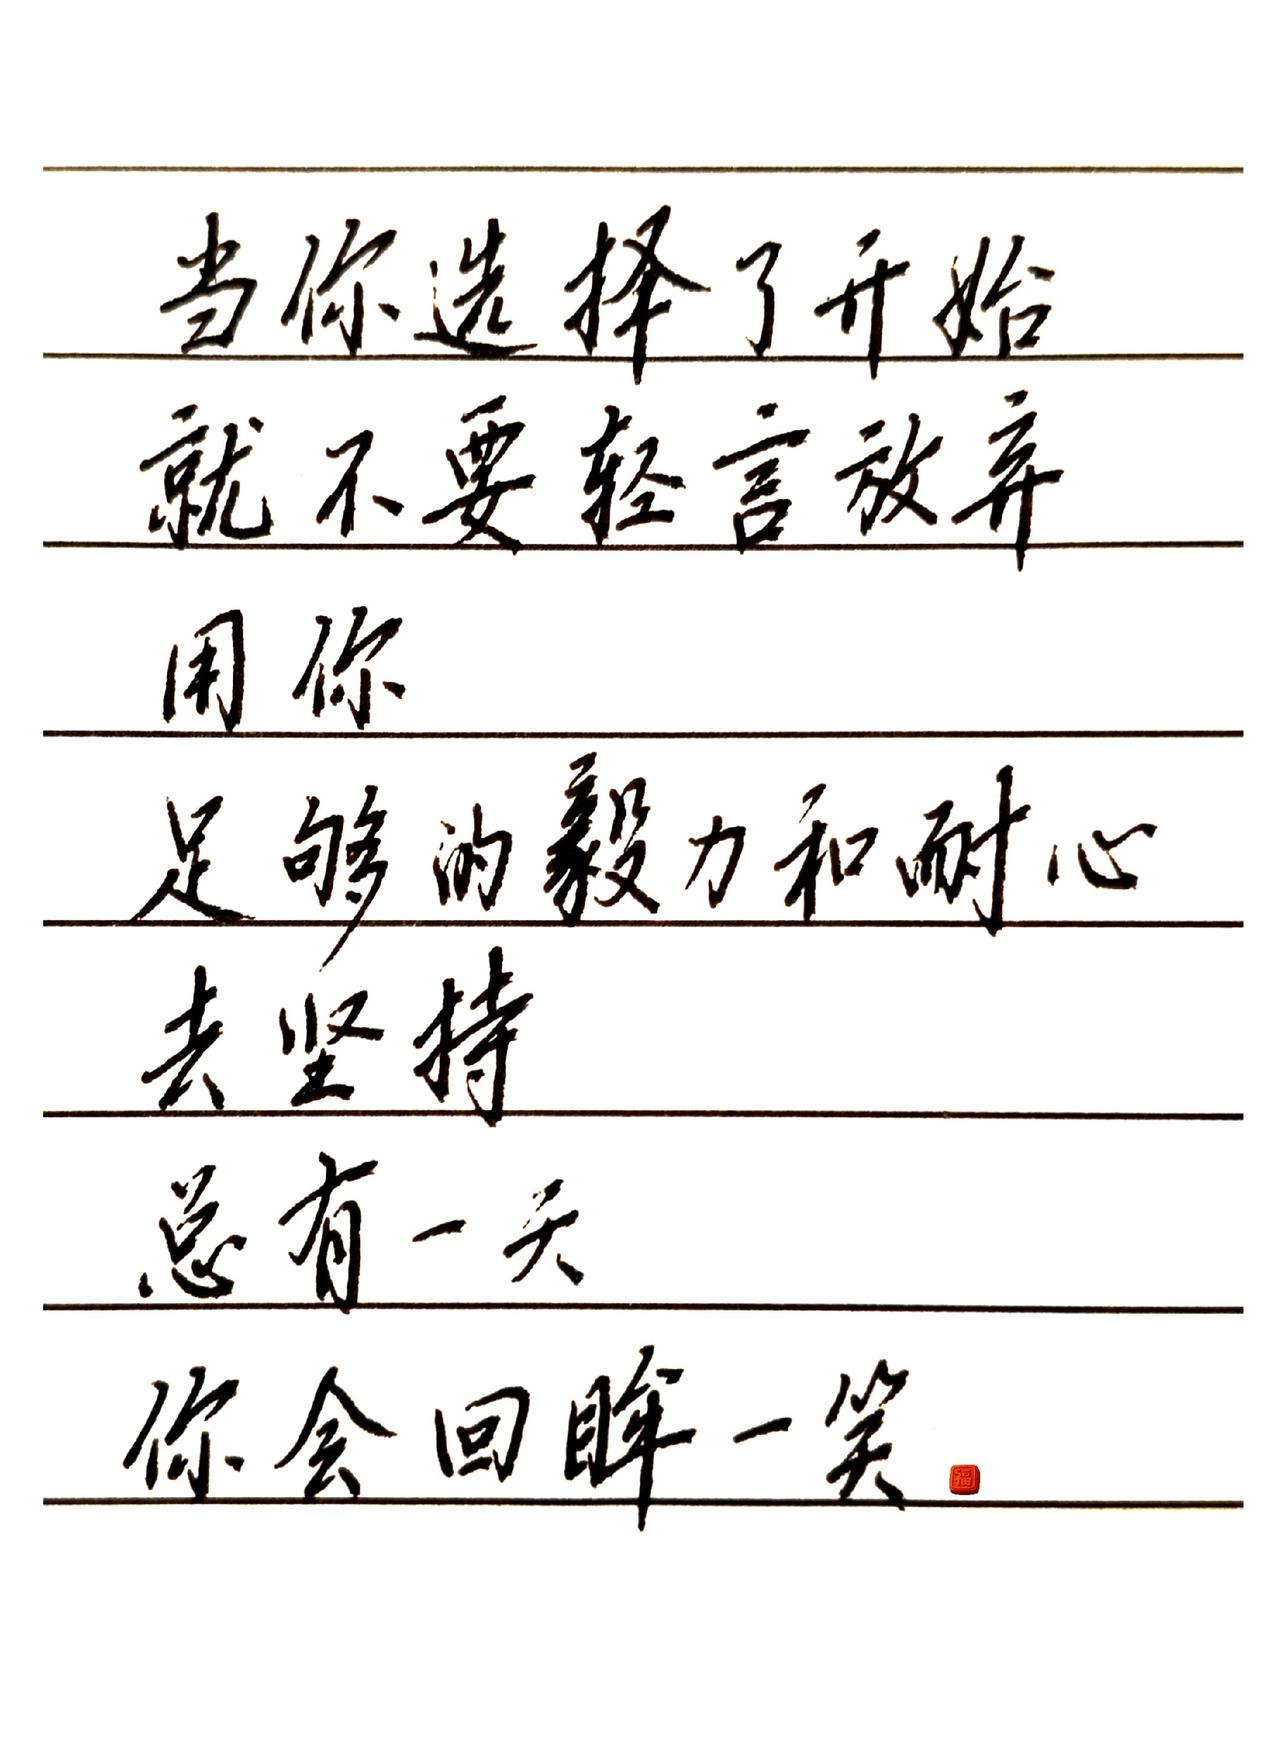 当你选择了开始
就不要轻言放弃
用你
足够的毅力和耐心
去坚持
总有一天
你会回眸一笑
福